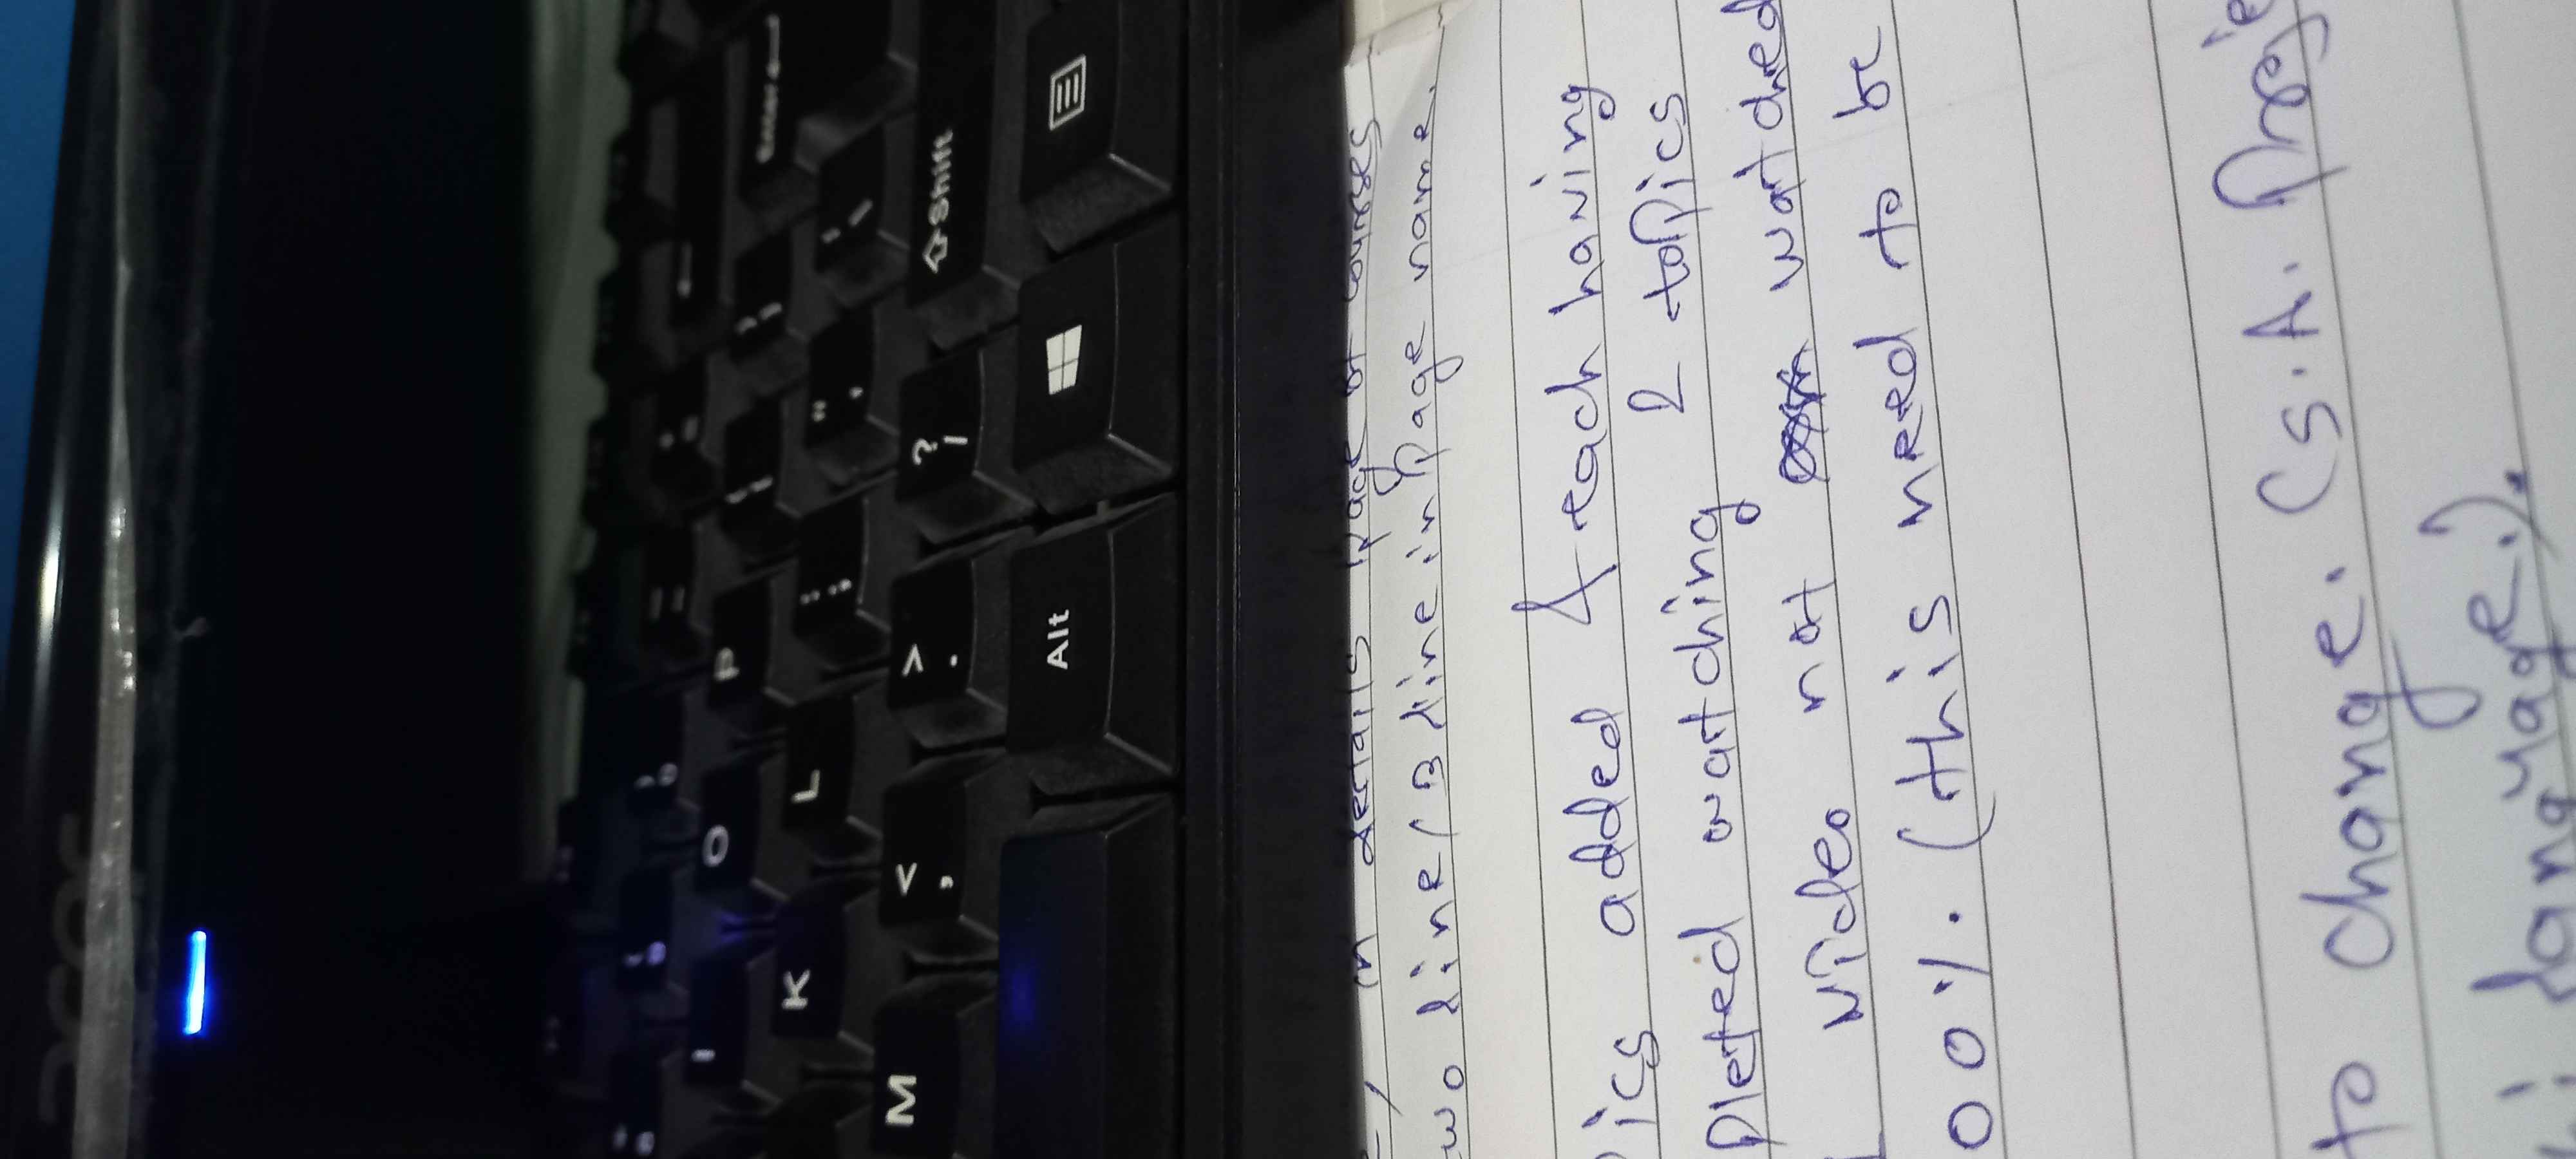 acer
I O P
Enter
K L : ; " '
M < , > . ? /
Shift
Alt
in details page of courses
wo line / 3 line in page name.
ics added & each having
pleted watching 2 topics
video not watched
00%. (this need to be
to change. (S.A. Proje
language.).